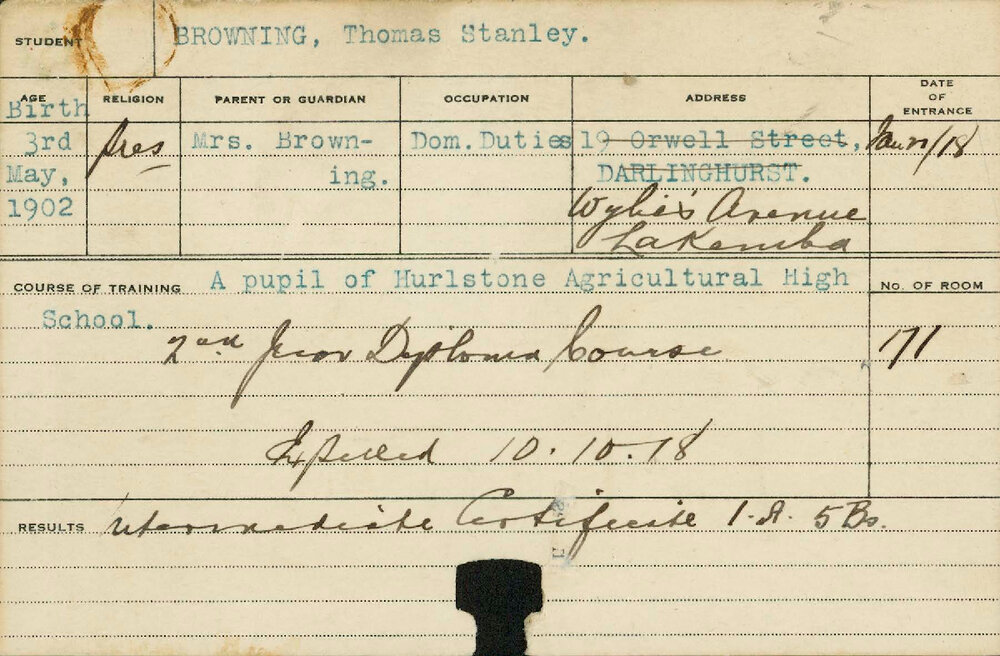 STUDENT BROWNING, Thomas Stanley.
AGE RELIGION PARENT OR GUARDIAN OCCUPATION ADDRESS DATE OF ENTRANCE
Birth
3rd Pres Mrs. Brown- Dom. Duties 19 Orwell Street, Jan 18
May, ing. DARLINGHURST.
1902 Wylie's Avenue
Lakemba
COURSE OF TRAINING A pupil of Hurlstone Agricultural High No. OF ROOM
School.
2nd Year Diploma Course 171
Expelled 10.10.18
RESULTS Intermediate Certificate 1.A. 5Bs.